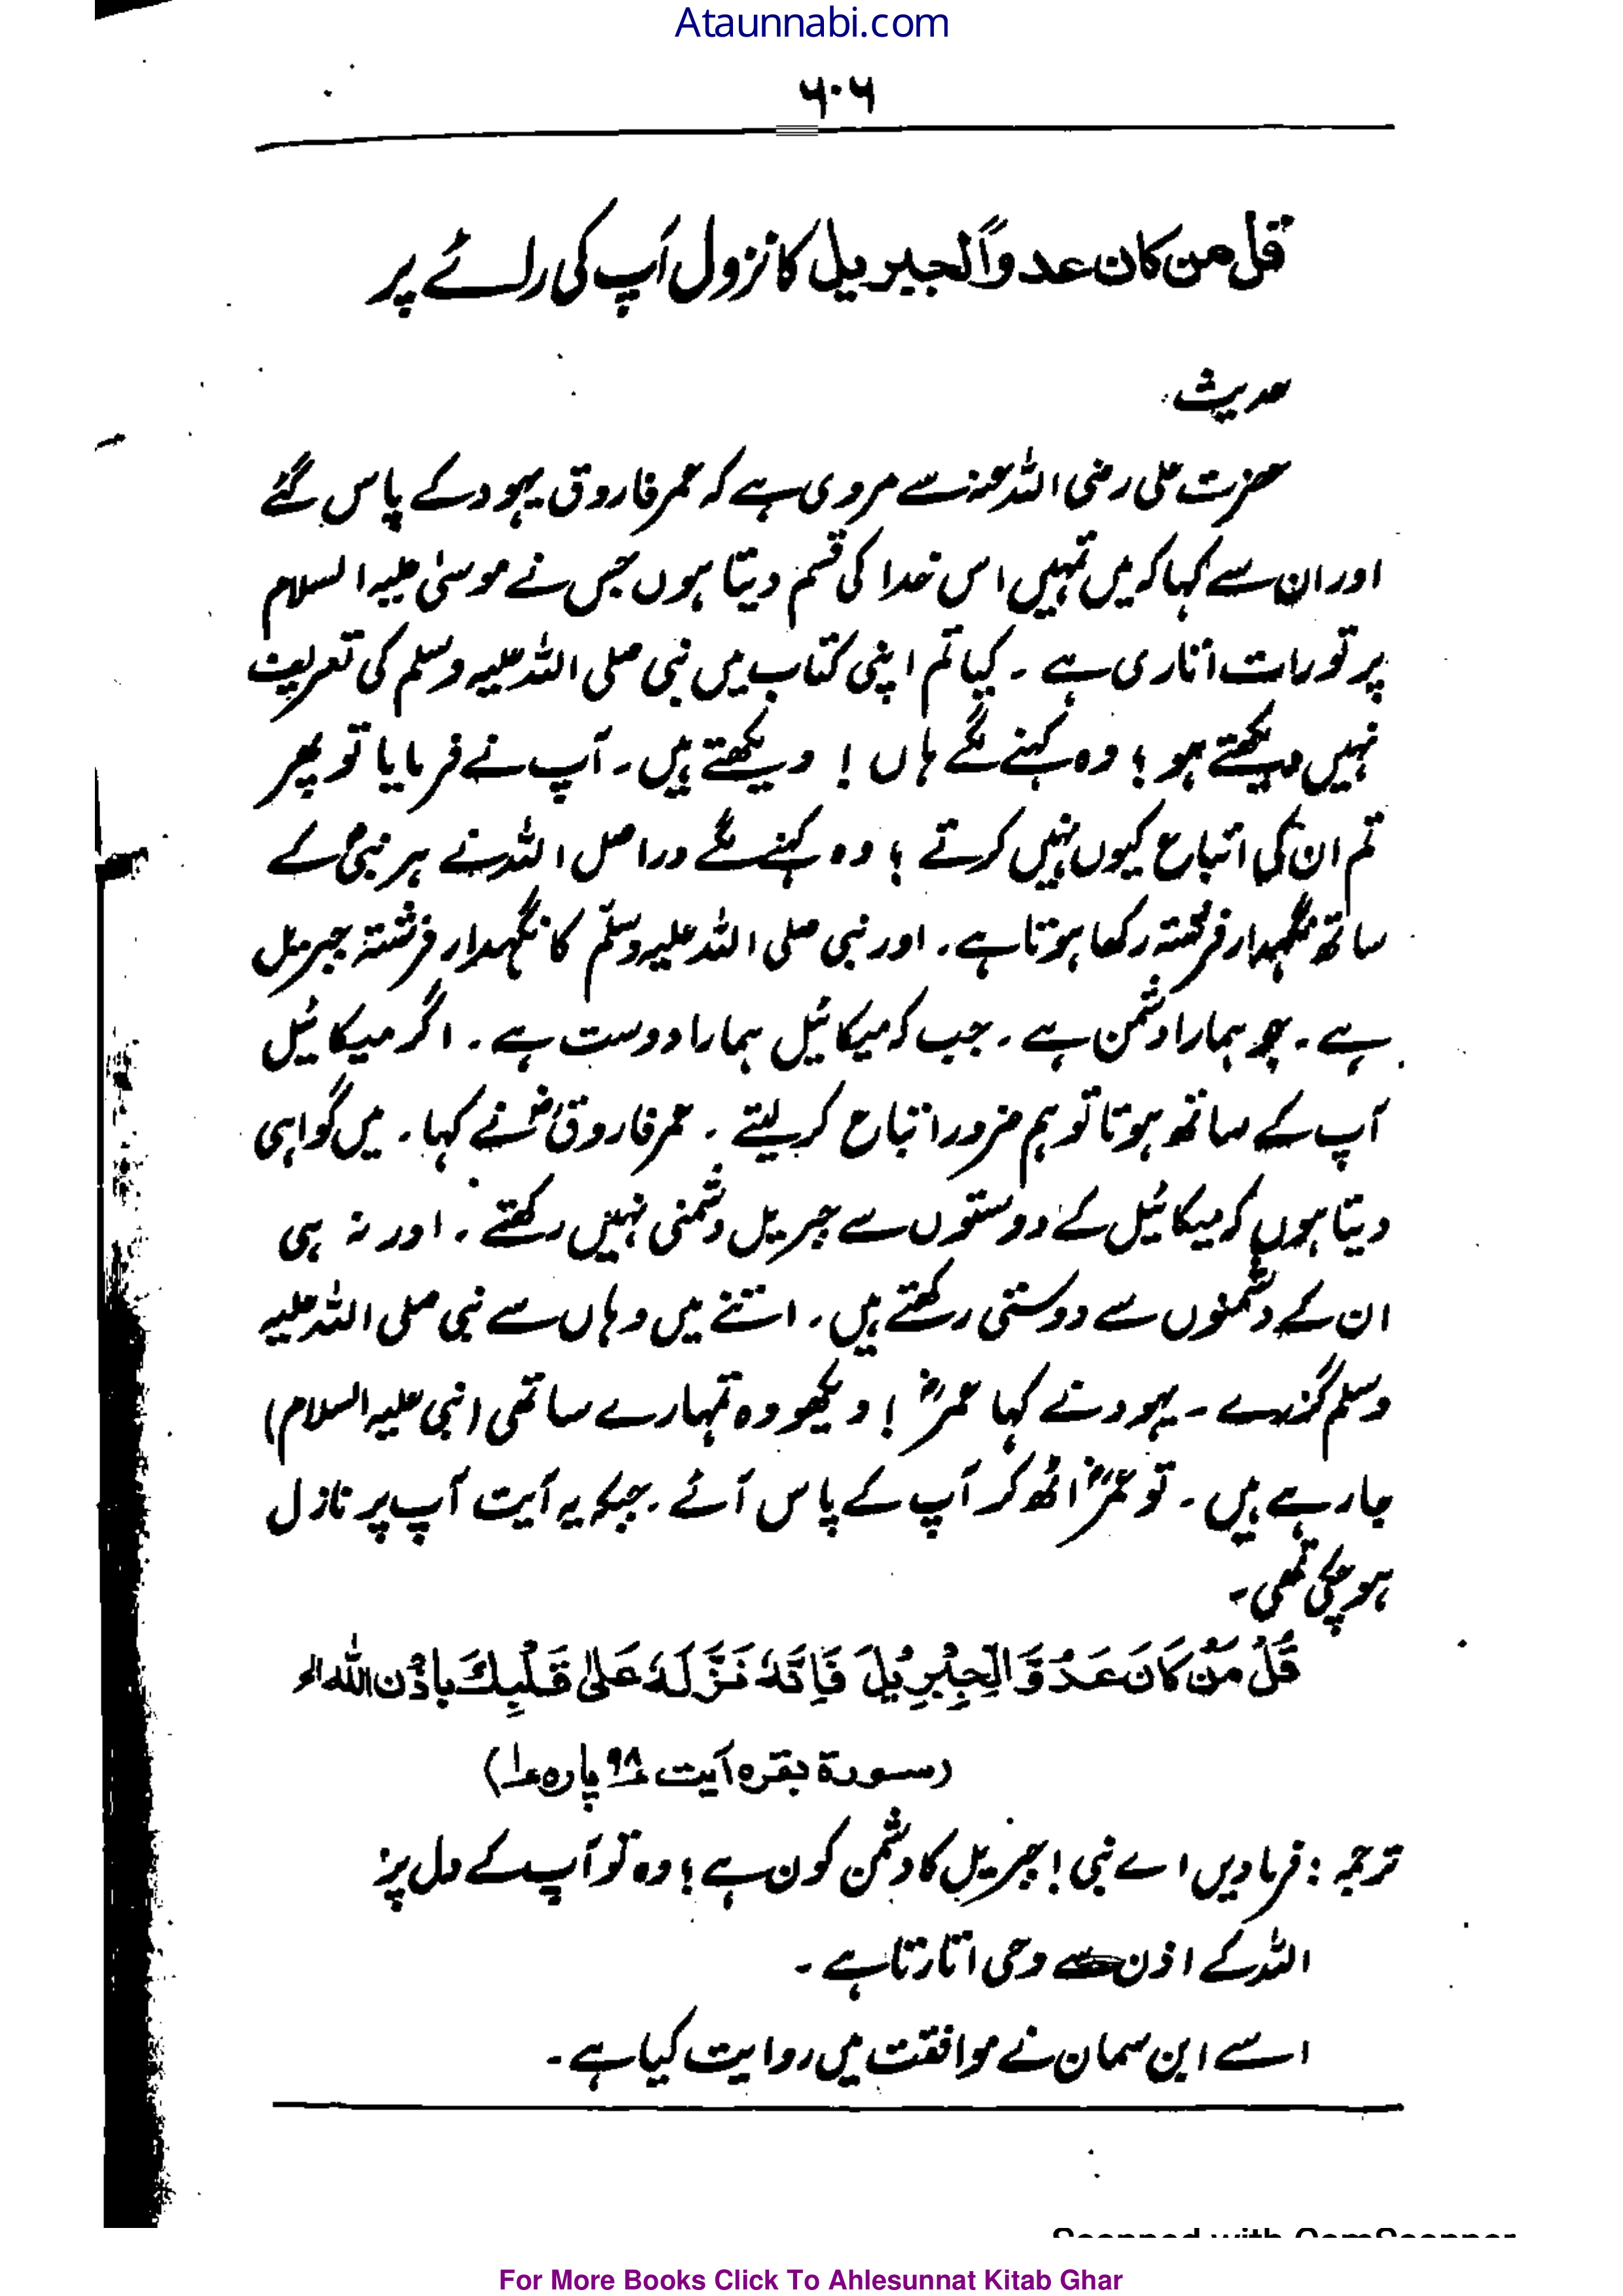 Ataunnabi.com
۶۰۶
قل من کان عدواً لجبریل کا نزول آپ کی رائے پر
حدیث
حضرت علی رضی اللہ عنہ سے مروی ہے کہ عمر فاروق یہود کے پاس گئے
اور ان سے کہا کہ میں تمہیں اس خدا کی قسم دیتا ہوں جس نے موسیٰ علیہ السلام
پر تورات اتاری ہے ۔ کیا تم اپنی کتاب میں نبی صلی اللہ علیہ وسلم کی تعریف
نہیں دیکھتے ہو ؟ وہ کہنے لگے ہاں ! دیکھتے ہیں ۔ آپ نے فرمایا تو پھر
تم ان کی اتباع کیوں نہیں کرتے ؟ وہ کہنے لگے دراصل اللہ نے ہر نبی کے
ساتھ نگہدار فرشتہ رکھا ہوتا ہے ۔ اور نبی صلی اللہ علیہ وسلّم کا نگہدار فرشتہ جبریل
ہے ۔ جو ہمارا دشمن ہے ۔ جب کہ میکائیل ہمارا دوست ہے ۔ اگر میکائیل
آپ کے ساتھ ہوتا تو ہم ضرور اتباع کر لیتے ۔ عمر فاروقؓ نے کہا ۔ میں گواہی
دیتا ہوں کہ میکائیل کے دوستوں سے جبریل دشمنی نہیں رکھتے ۔ اور نہ ہی
ان کے دشمنوں سے دوستی رکھتے ہیں ۔ اتنے میں وہاں سے نبی صلی اللہ علیہ
وسلم گزرے ۔ یہود نے کہا عمرؓ ! دیکھو وہ تمہارے ساتھی (نبی علیہ السلام)
جا رہے ہیں ۔ تو عمرؓ اٹھ کر آپ کے پاس آئے ۔ جبکہ یہ آیت آپ پر نازل
ہو چکی تھی ۔
قُلْ مَنْ كَانَ عَدُوًّا لِّجِبْرِيْلَ فَاِنَّهٗ نَزَّلَهٗ عَلٰى قَلْبِكَ بِاذْنِ اللّٰه الخ
(سورۃ بقرہ آیت ۹۸ پارہ ۱)
ترجمہ : فرما دیں اے نبی ! جبریل کا دشمن کون ہے ؟ وہ تو آپ کے دل پر
اللہ کے اذن سے وحی اتارتا ہے ۔
اسے ابن سمان نے موافقت میں روایت کیا ہے ۔
Scanned with CamScanner
For More Books Click To Ahlesunnat Kitab Ghar